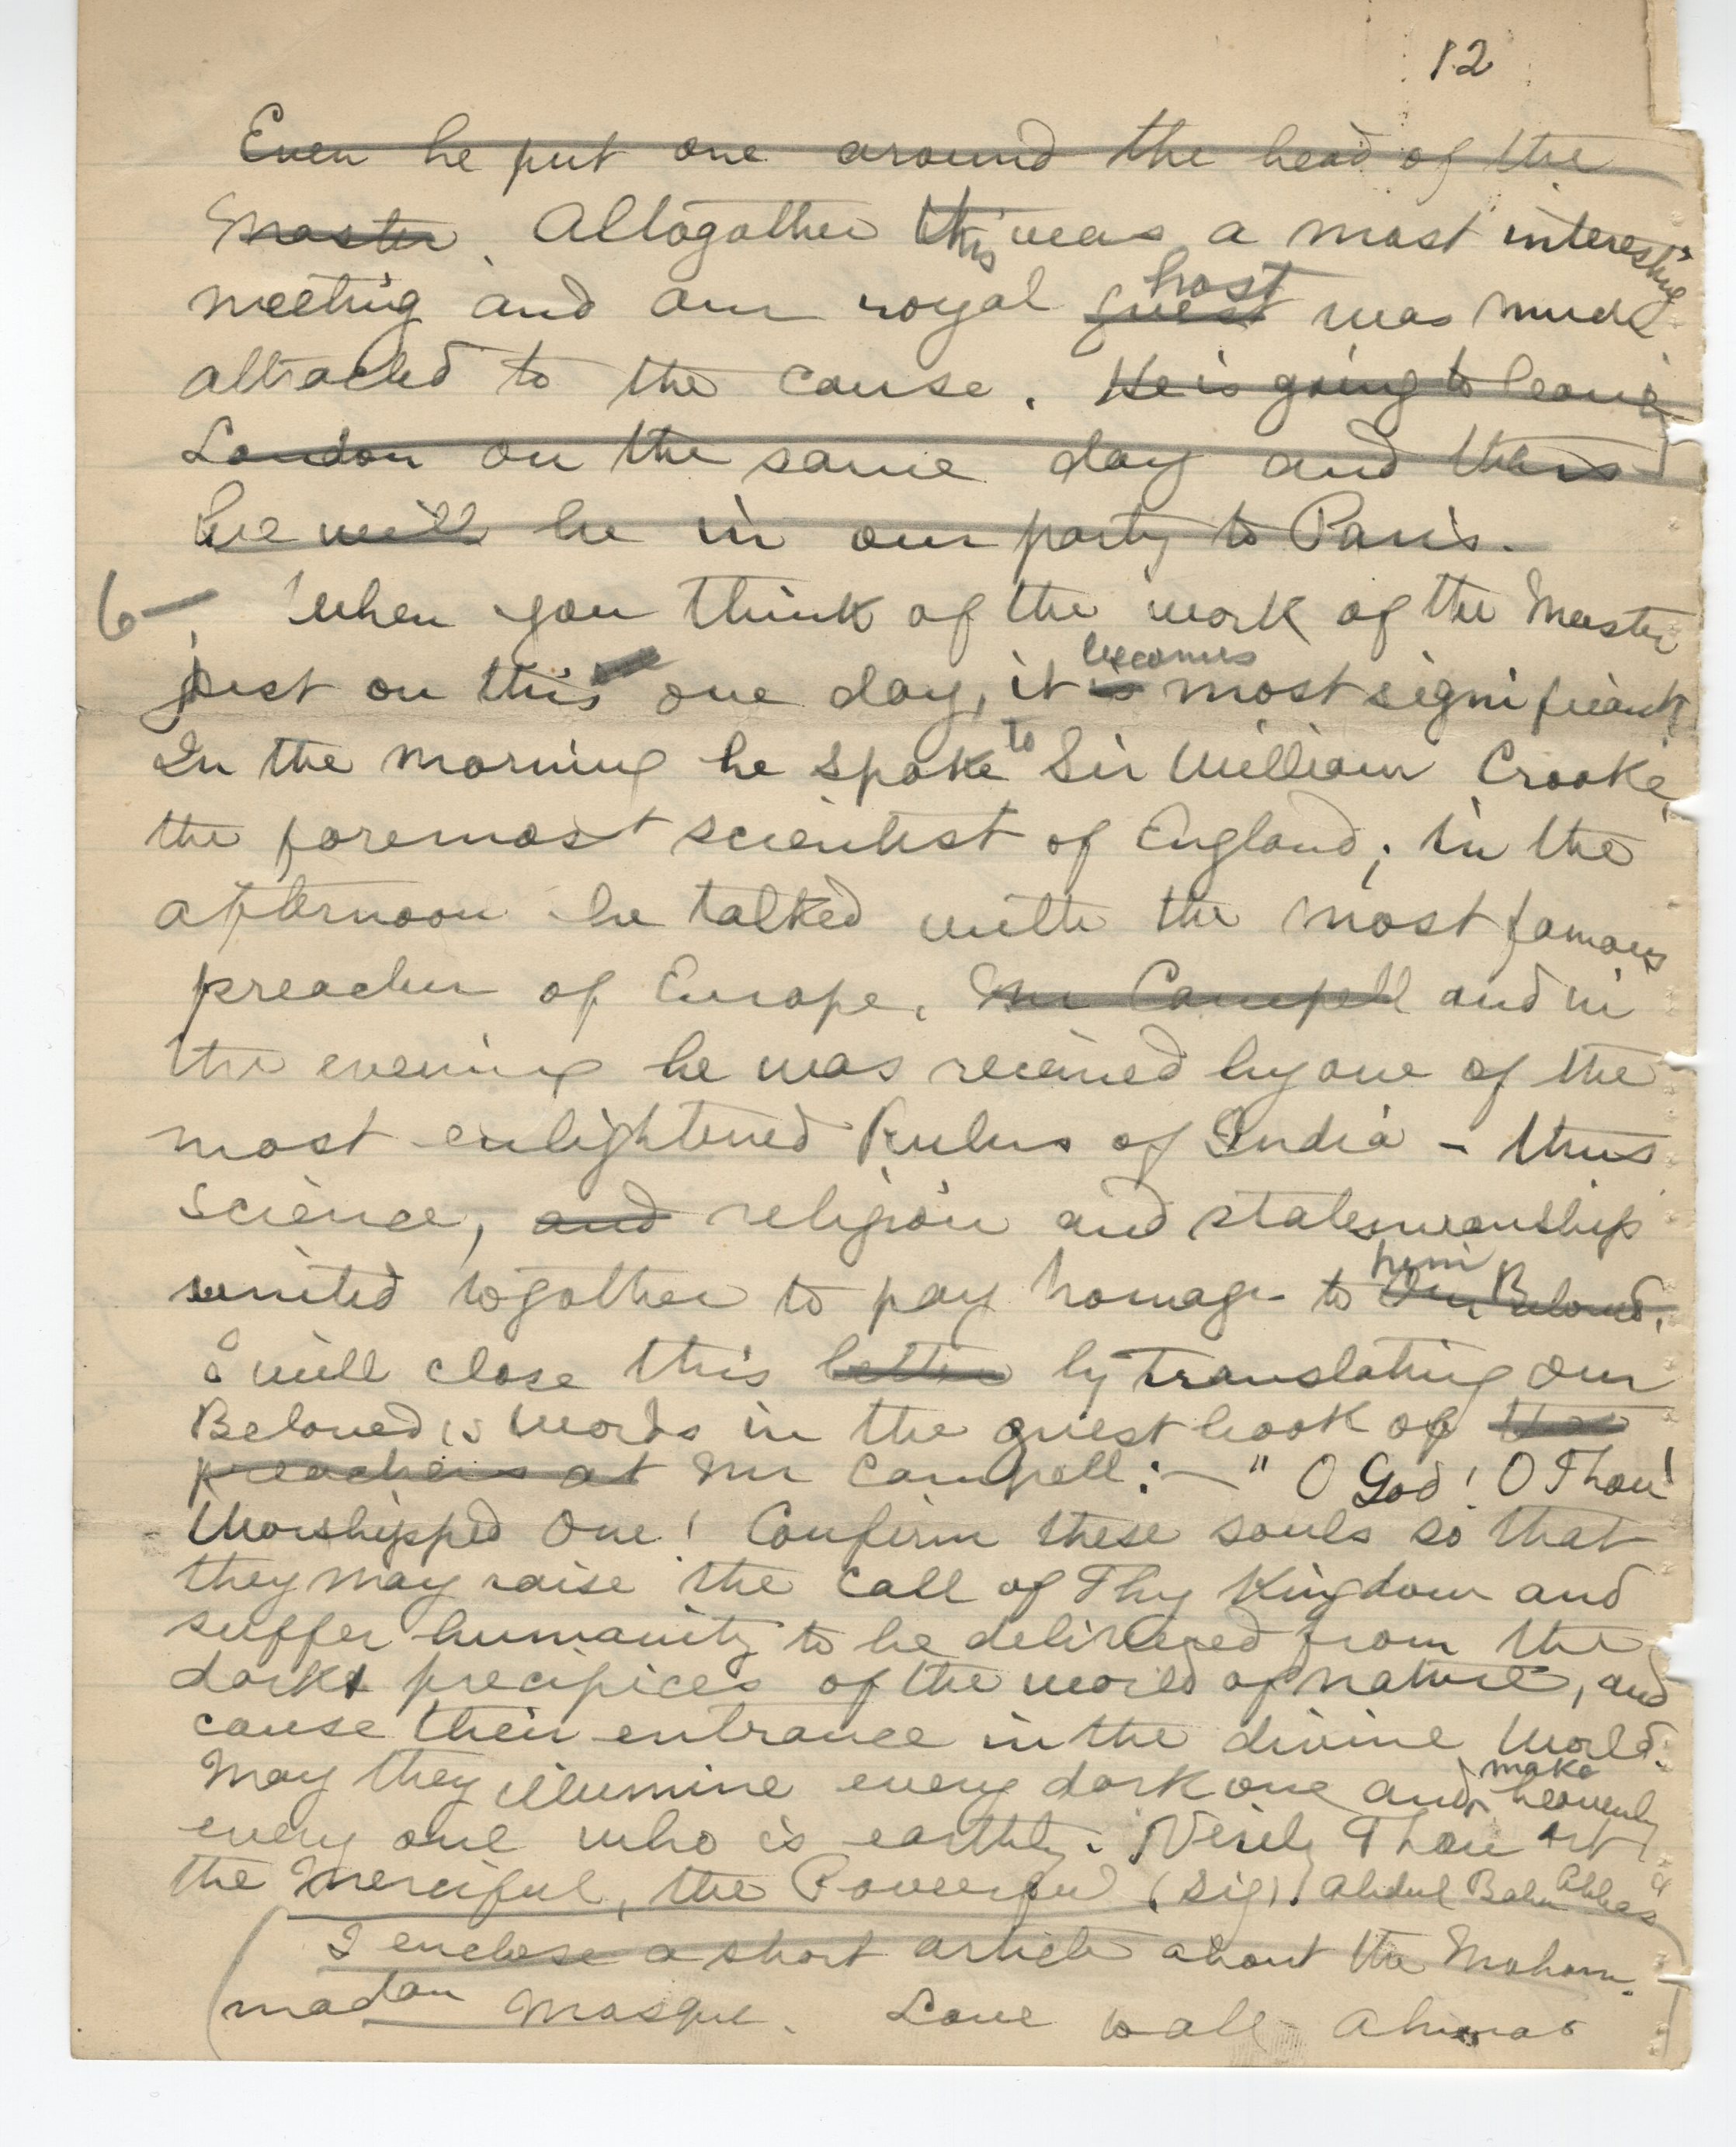 12
Even he put one around the head of the
Master. Altogather this was a most interesting
host
meeting and our royal guest was much
attracted to the cause. He is going to leave
London on the same day and thus
he will be in our party to Paris.
6— When you think of the work of the Master
becomes
just on this one day, it is most significant
to
In the morning he spoke Sir William Crooke,
the foremost scientist of England; in the
afternoon he talked with the most famous
preacher of Europe, Mr Campell and in
the evening he was received by one of the
most enlightened Rulers of India - thus
science, and religion and statesmanship
him
united togather to pay homage to Our Beloved.
I will close this letter by translating our
Beloved's words in the guest book of the
preachers at Mr Campell:— " O God! O Thou
Worshipped One! Confirm these souls so that
they may raise the call of Thy Kingdom and
suffer humanity to be delivered from the
dark precipices of the world of nature, and
cause their entrance in the divine World.
make
May they illumine every dark one and heavenly
every one who is earthly. Verily Thou art
the Merciful, the Powerful (sig). Abdul Baha Abbas
I enclose a short article about the Moham-
madan Mosque. Love to all Ahmad